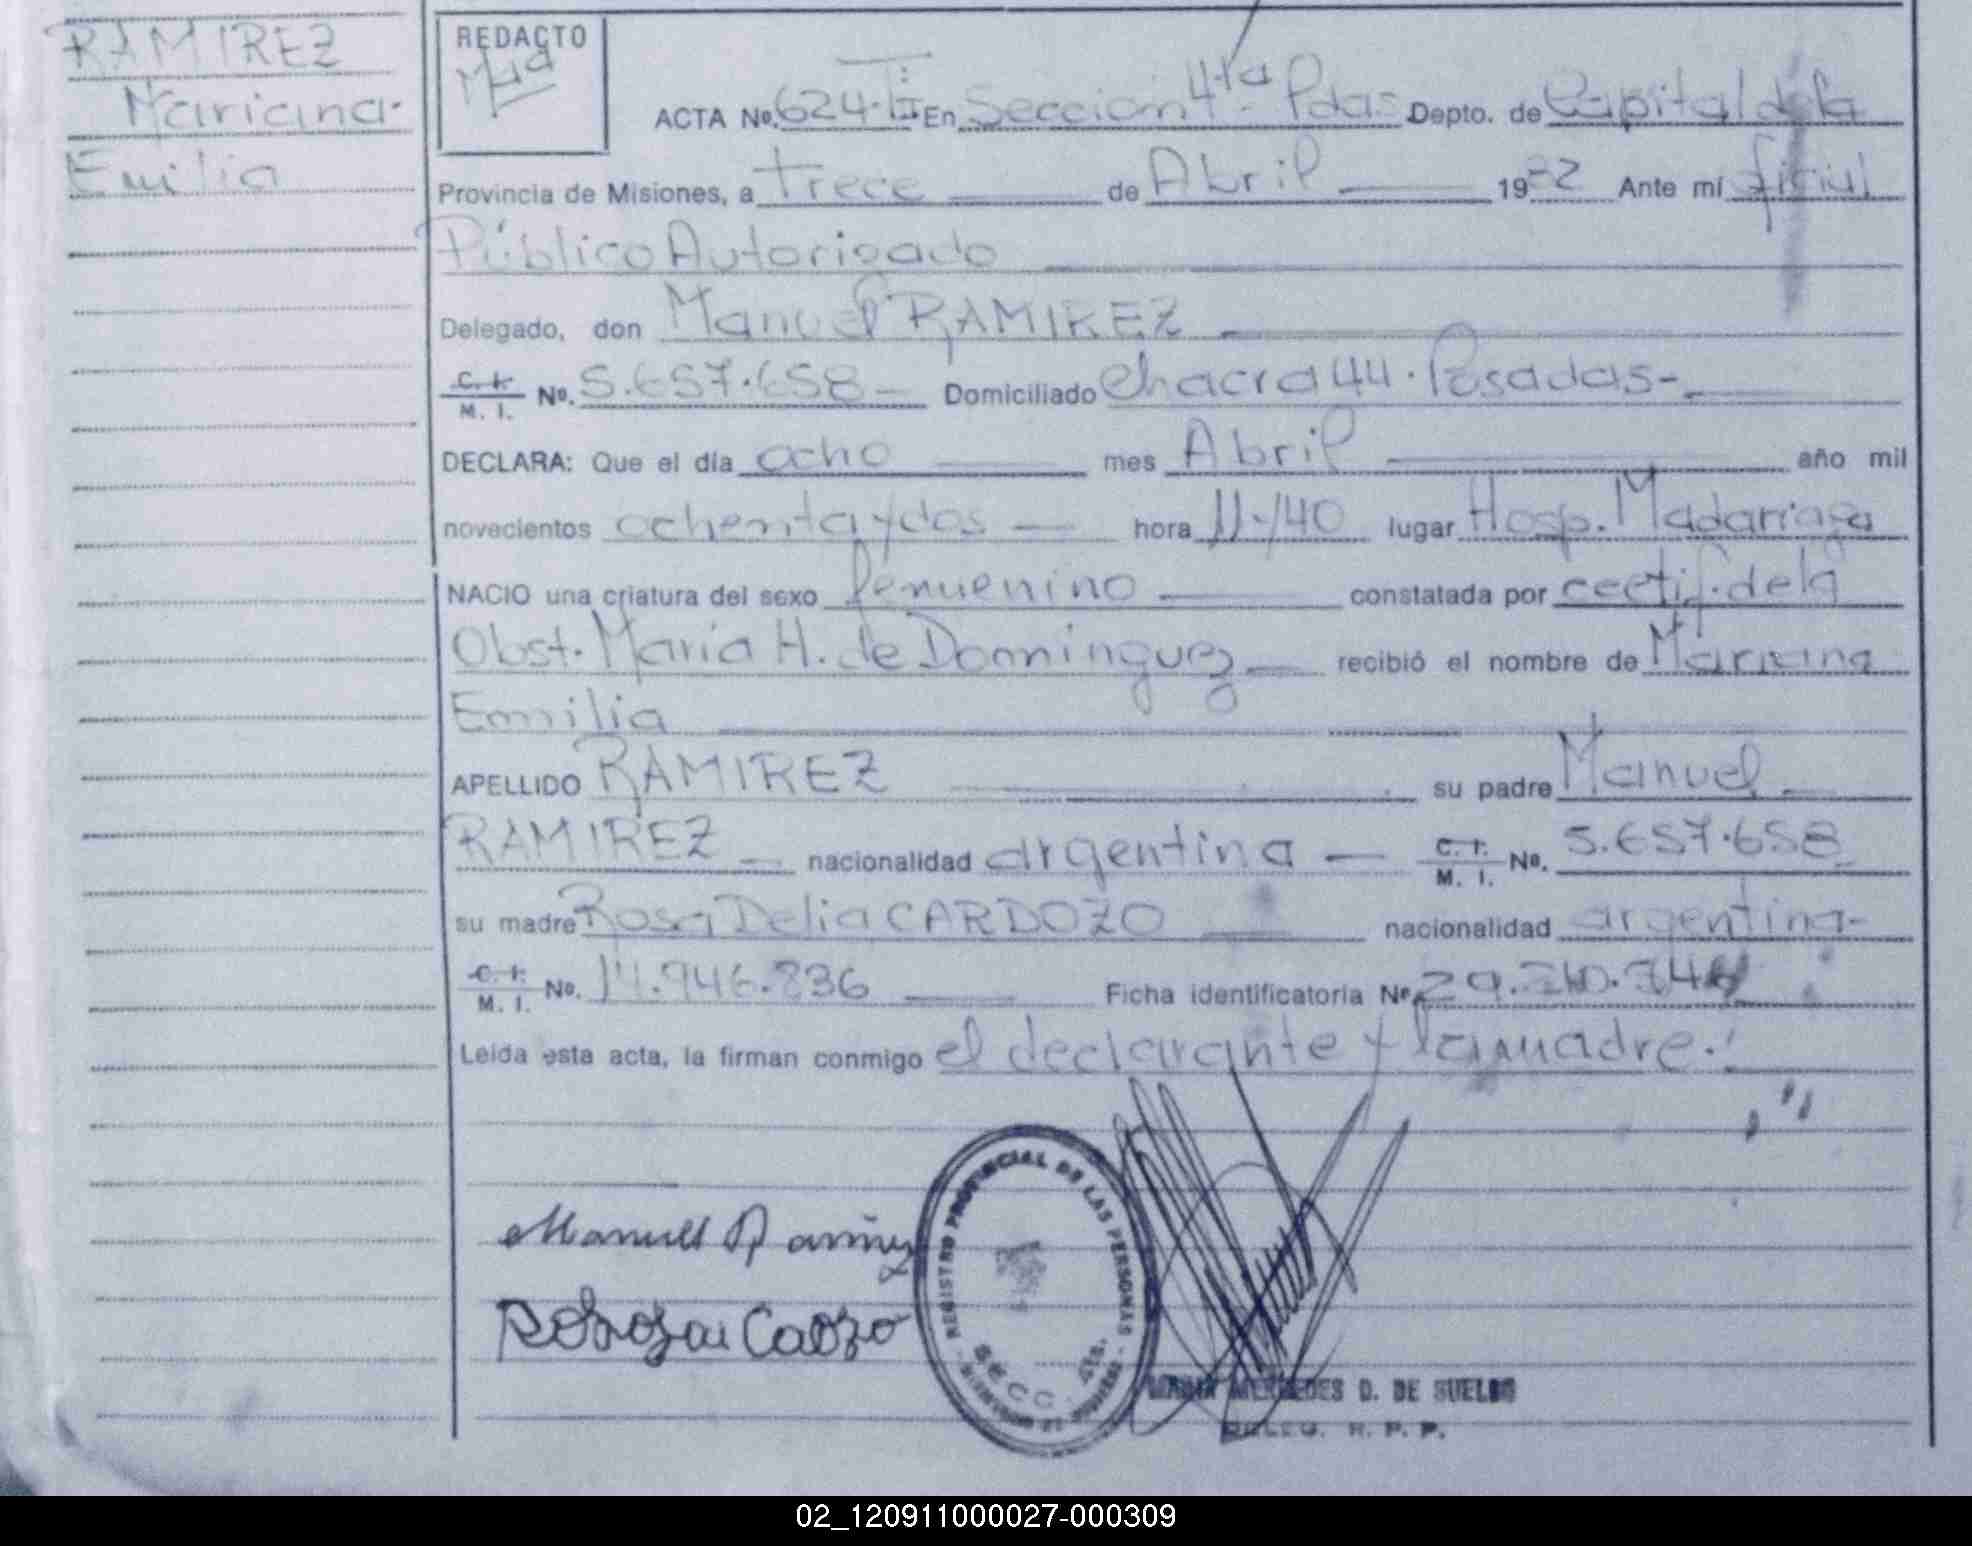 RAMIREZ
Mariana
Emilia
REDACTO
ACTA Nº. 624.TºII En Seccion 4ta Pdas. Depto. de Capital de la
Provincia de Misiones, a trece de Abril 1982 Ante mí Oficial
Público Autorizado
Delegado, don Manuel RAMIREZ
C. I. M. I. Nº. 5.657.658 Domiciliado Chacra 44. Posadas-
DECLARA: Que el día ocho mes Abril año mil
novecientos ochenta y dos hora 11-40 lugar Hosp. Madariaga
NACIO una criatura del sexo femenino constatada por certif. de la
Obst. María H. de Dominguez recibió el nombre de Mariana
Emilia
APELLIDO RAMIREZ su padre Manuel
RAMIREZ nacionalidad argentina C. I. M. I. Nº. 5.657.658
su madre Rosa Delia CARDOZO nacionalidad argentina-
C. I. M. I. Nº. 14.946.836 Ficha identificatoria Nº
Leída esta acta, la firman conmigo el declarante y la madre.
Manuel Ramirez
REGISTRO PROVINCIAL DE LAS PERSONAS
SECC. 4ta.
MARIA MERCEDES D. DE SUELDO
DELEG. R. P. P.
02_120911000027-000309